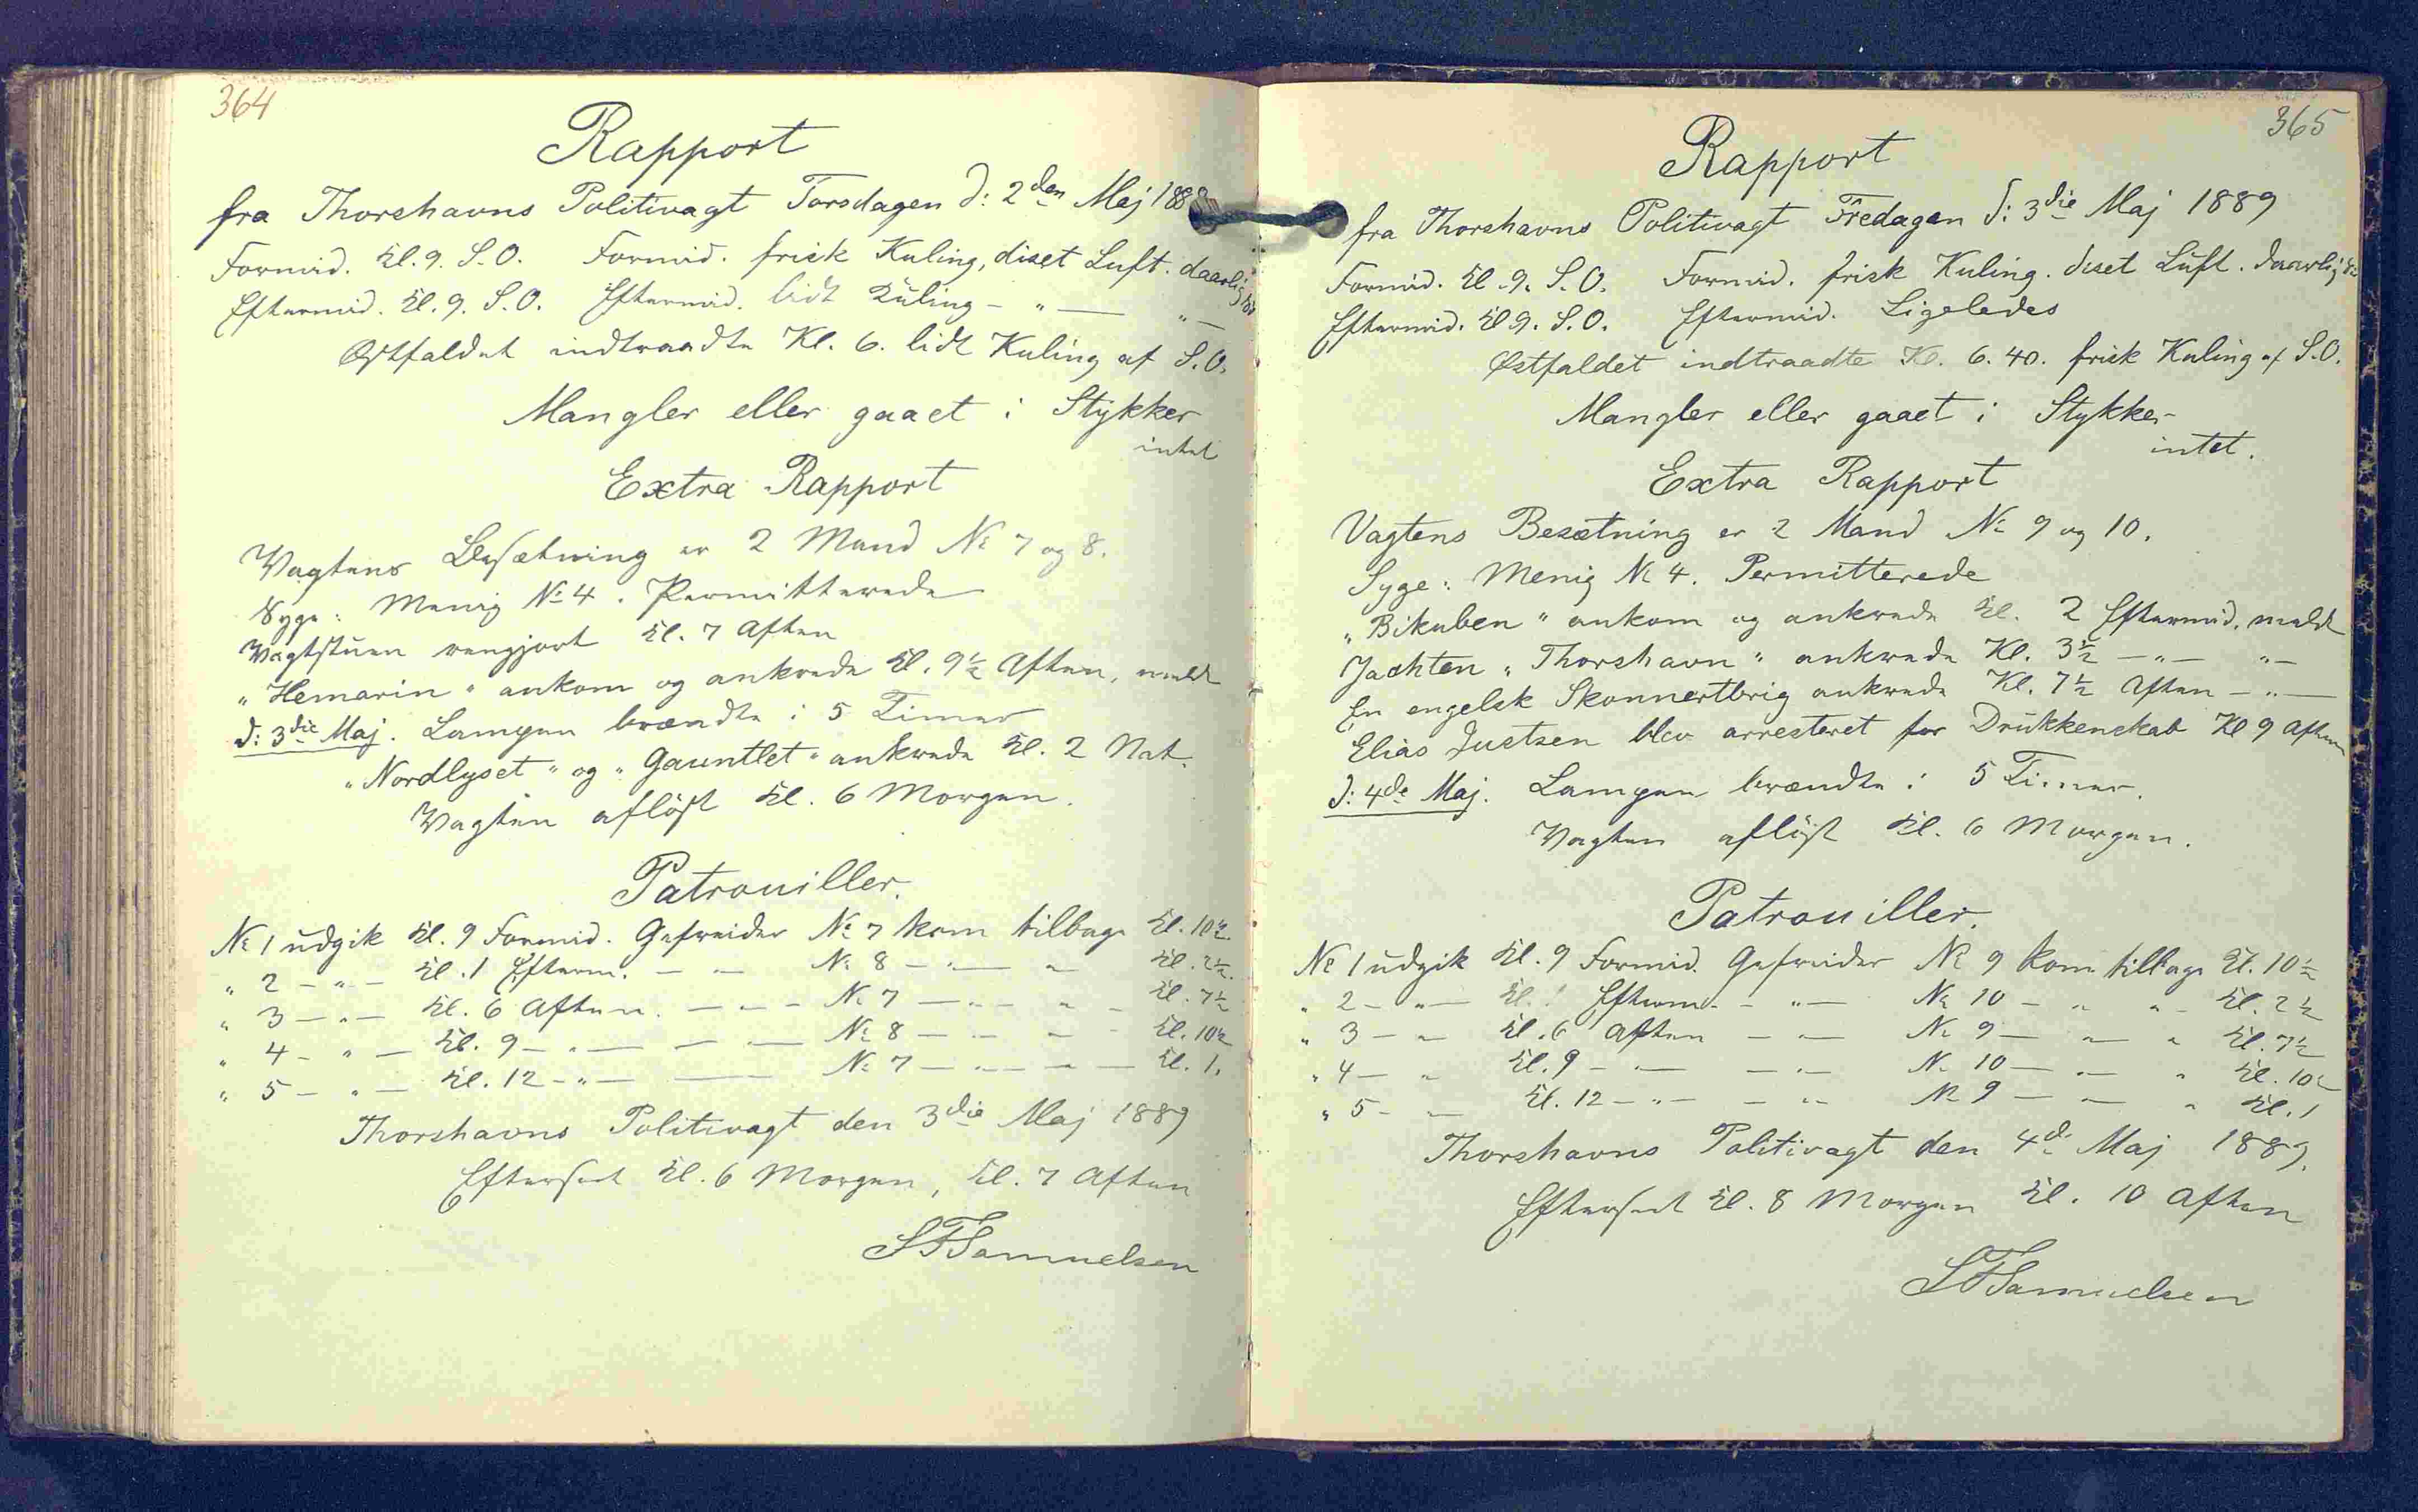 364
Rapport
fra Thorshavns Politivagt Torsdagen d: 2den Maj 188
Formid. Kl. 9. S.O. Formid. frisk Kuling, diset Luft. daarlig
Eftermid. Kl. 9. S.O. Eftermid. lidt Kuling - " - " -
Østfaldet indtraadte Kl. 6. lidt Kuling af S.O.
Mangler eller gaaet i Stykker
intet
Extra Rapport
Vagtens Besætning er 2 Mand No 7 og 8.
Syge: Menig No 4. Permitterede
Vagtstuen rengjort Kl. 7 Aften
"Hemarin" ankom og ankrede Kl. 9½ Aften, meldt
d: 3die Maj. Lampen brændte i 5 Timer
"Nordlyset" og "Gauntlet" ankrede Kl. 2 Nat.
Vagten afløst Kl. 6 Morgen.
Patrouiller.
No 1 udgik Kl. 9 Formid. Gefreider No 7 kom tilbage Kl. 10½
" 2 - " - Kl. 1 Efterm. - " - No 8 - " - " - Kl. 2½.
" 3 - " - Kl. 6 Aften. - " - No 7 - " - " - Kl. 7½
" 4 - " - Kl. 9 - " - - " - No 8 - " - " - Kl. 10½
" 5 - " - Kl. 12 - " - - No 7 - " - " - Kl. 1.
Thorshavns Politivagt den 3die Maj 1889
Efterset Kl. 6 Morgen, Kl. 7 Aften
SFSamuelsen
365
Rapport
fra Thorshavns Politivagt Fredagen d: 3die Maj 1889
Formid. Kl. 9. S.O. Formid. frisk Kuling. diset Luft. daarlig
Eftermid. Kl 9. S.O. Eftermid. Ligeledes
Østfaldet indtraadte Kl. 6.40. frisk Kuling af S.O.
Mangler eller gaaet i Stykker
intet.
Extra Rapport
Vagtens Besætning er 2 Mand No 9 og 10.
Syge: Menig No 4. Permitterede
"Bikuben" ankom og ankrede Kl. 2 Eftermid. meldt
Jachten "Thorshavn" ankrede Kl. 3½ - " - " -
En engelsk Skonnertbrig ankrede Kl. 7½ Aften - " -
Elias Justsen blev arresteret for Drukkenskab Kl 9 Aften
d: 4de Maj. Lampen brændte i 5 Timer.
Vagten afløst Kl. 6 Morgen.
Patrouiller.
No 1 udgik Kl. 9 Formid. Gefreider No 9 kom tilbage Kl. 10½
" 2 - " - Kl. 1 Efterm. - " - No 10 - " " - Kl. 2½
" 3 - " Kl. 6 Aften - " - No 9 - " - " Kl. 7½
" 4 - " Kl. 9 - " - - " - No 10 - " - " Kl. 10½
" 5 - " - Kl. 12 - " - - " - No 9 - " - " Kl. 1
Thorshavns Politivagt den 4de Maj 1889.
Efterset Kl. 8 Morgen Kl. 10 Aften
SFSamuelsen